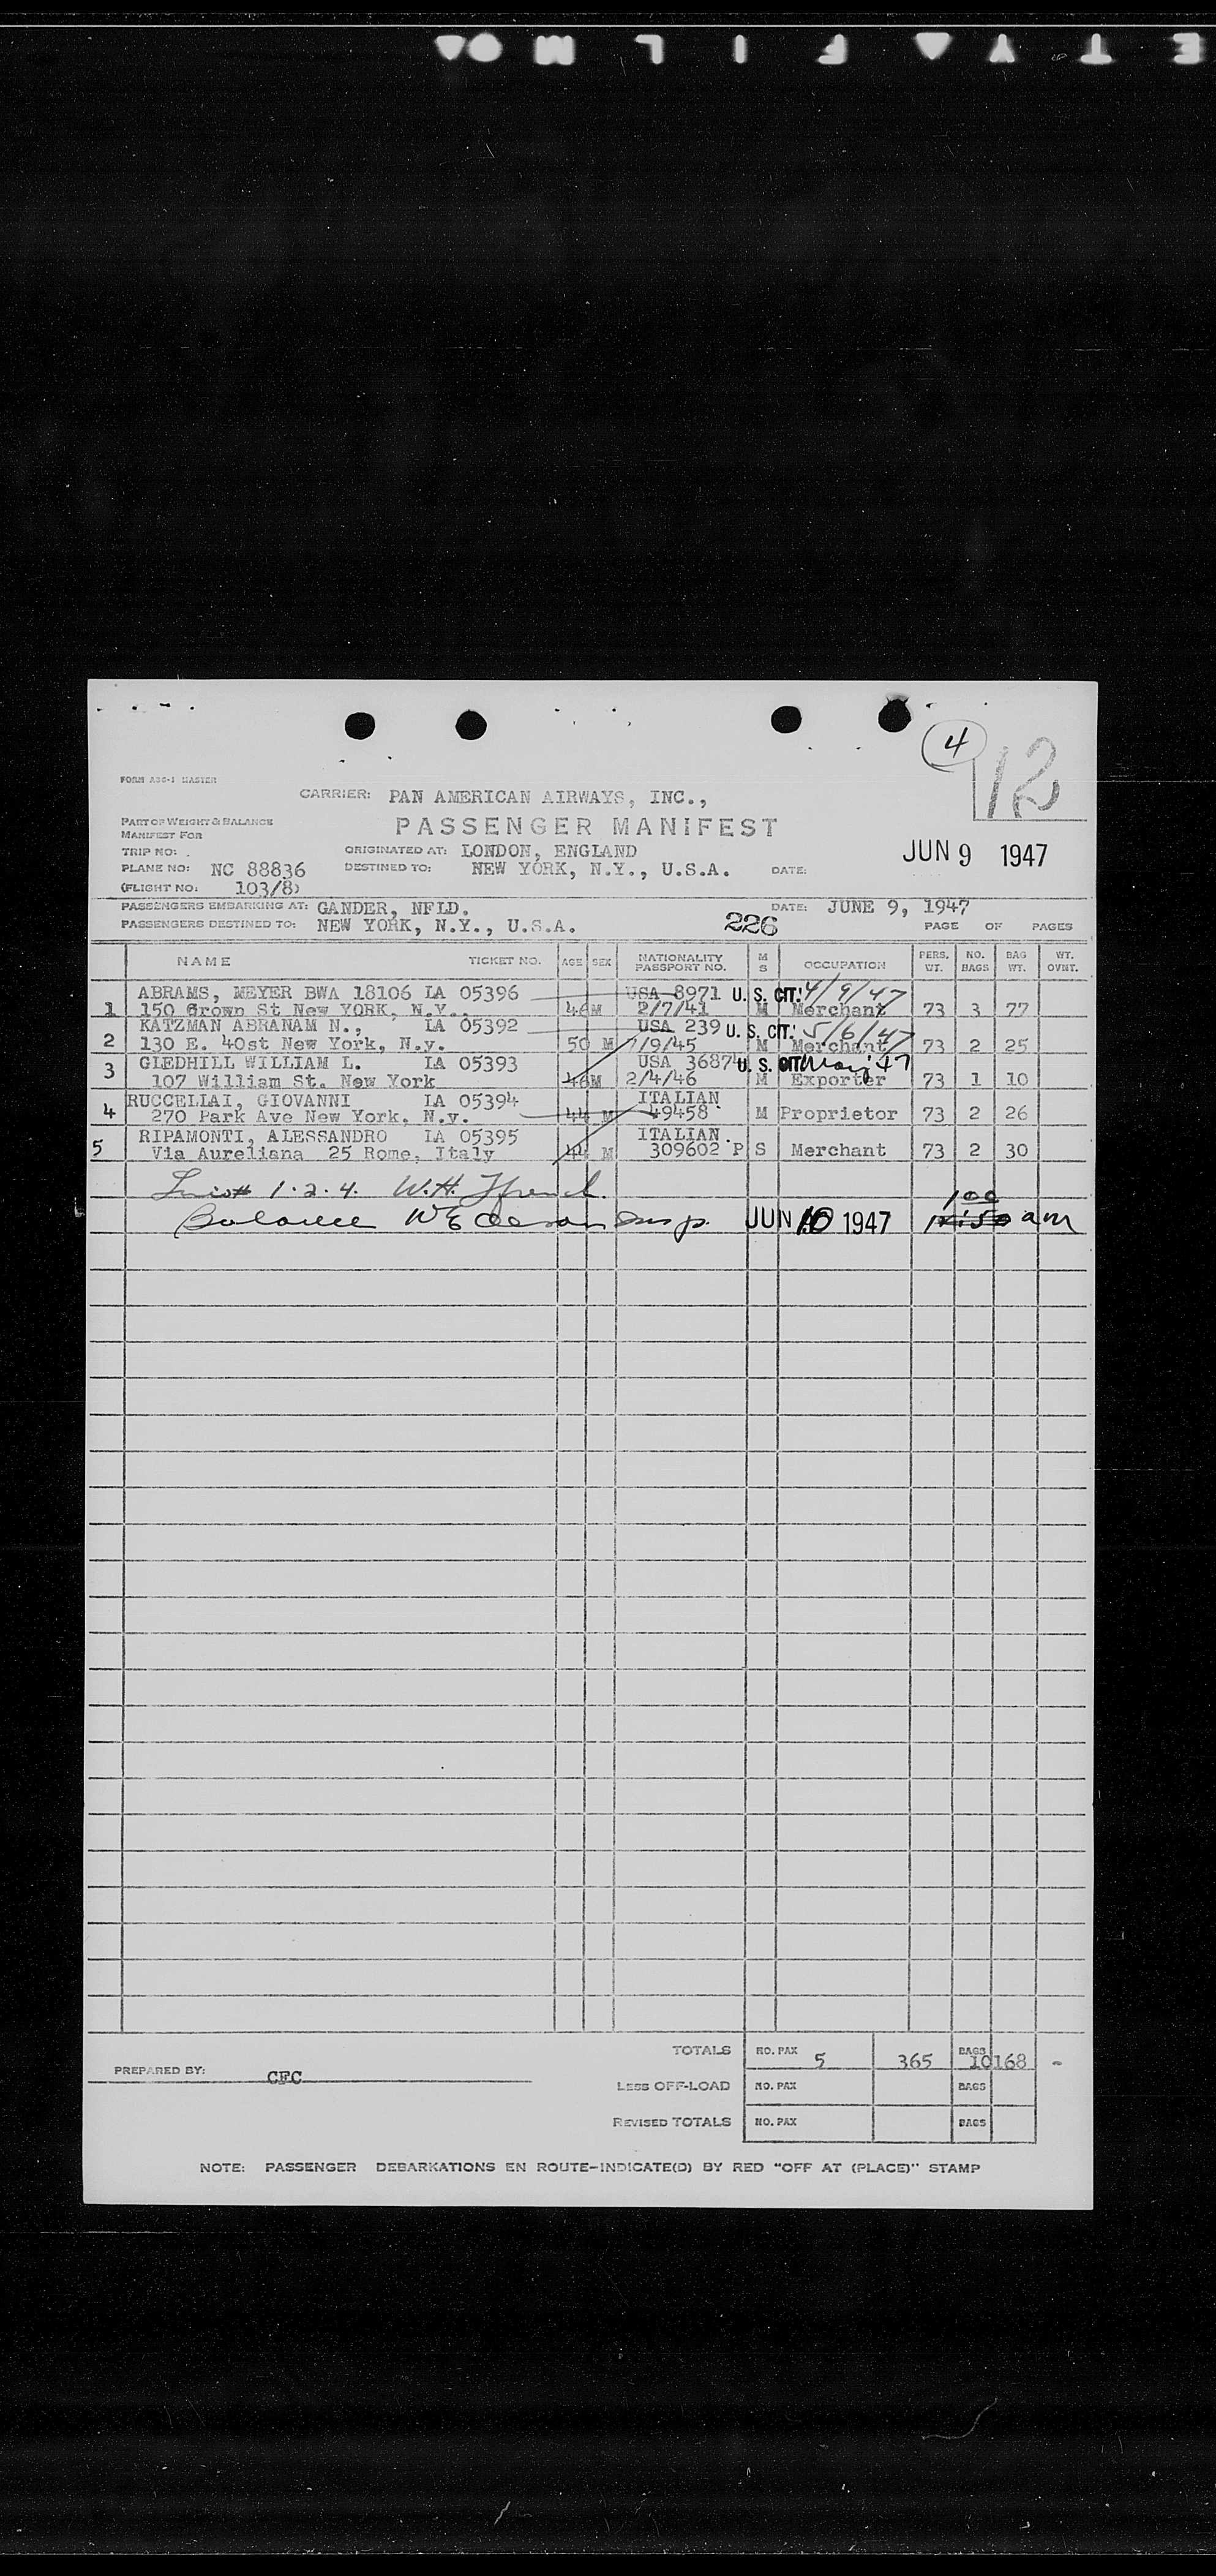 SAFETY FILM
4
12
FORM ADC-1 MASTER
CARRIER: PAN AMERICAN AIRWAYS, INC.,
PART OF WEIGHT & BALANCE
MANIFEST FOR
PASSENGER MANIFEST
TRIP NO:
ORIGINATED AT: LONDON, ENGLAND
JUN 9 1947
PLANE NO: NC 88836
DESTINED TO: NEW YORK, N.Y., U.S.A. DATE:
(FLIGHT NO: 103/8)
PASSENGERS EMBARKING AT: GANDER, NFLD. DATE: JUNE 9, 1947
PASSENGERS DESTINED TO: NEW YORK, N.Y., U.S.A. 226 PAGE OF PAGES
NAME TICKET NO. AGE SEX NATIONALITY PASSPORT NO. M S OCCUPATION PERS. WT. NO. BAGS BAG WT. WT. OVNT.
ABRAMS, MEYER BWA 18106 IA 05396 USA 8971 U. S. CIT. 4/9/47
1 150 Grown St New YORK, N.Y., 46 M 2/7/41 M Merchant 73 3 77
KATZMAN ABRANAM N., IA 05392 USA 239 U. S. CIT. 5/6/47
2 130 E. 40st New York, N.y. 50 M /9/45 M Merchant 73 2 25
GLEDHILL WILLIAM L. IA 05393 USA 36874 U. S. CIT May 47
3 107 William St. New York 46 M 2/4/46 M Exporter 73 1 10
RUCCELLAI, GIOVANNI IA 05394 ITALIAN
4 270 Park Ave New York, N.y. 44 M 49458 M Proprietor 73 2 26
RIPAMONTI, ALESSANDRO IA 05395 ITALIAN.
5 Via Aureliana 25 Rome, Italy M 309602 P S Merchant 73 2 30
1.2.4. W.H.
Balance Insp. JUN 10 1947 1 00 12:50 am
TOTALS NO. PAX 5 365 BAGS 10 168 -
PREPARED BY: CFC
LESS OFF-LOAD NO. PAX BAGS
REVISED TOTALS NO. PAX BAGS
NOTE: PASSENGER DEBARKATIONS EN ROUTE-INDICATE(D) BY RED "OFF AT (PLACE)" STAMP